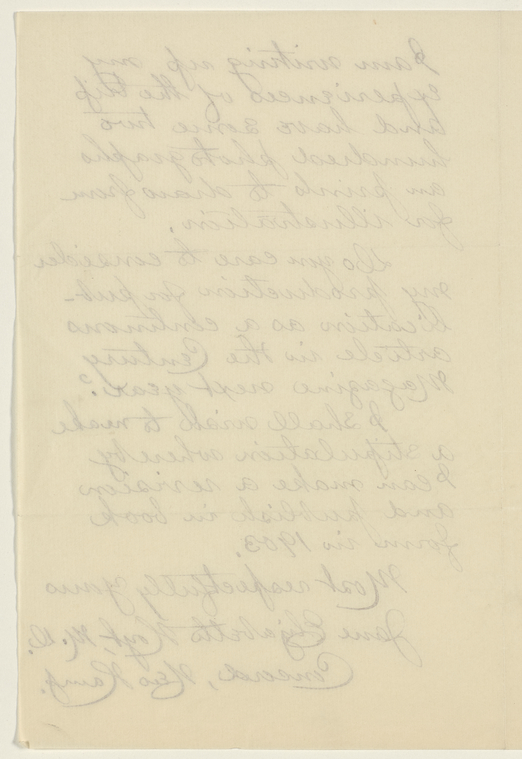 I am writing up my
experiences of the trip
and have some two
hundred photographs
on prints to draw from
for illustration.
Do you care to consider
my production for pub-
lication as a continuous
article in the Century
Magazine next year?
I shall wish to make
a stipulation whereby
I can make a revision
and publish in book
form in 1903.
Most respectfully yours
Jane Elizabeth Hoyt, M.D.
Concord, New Hamp.